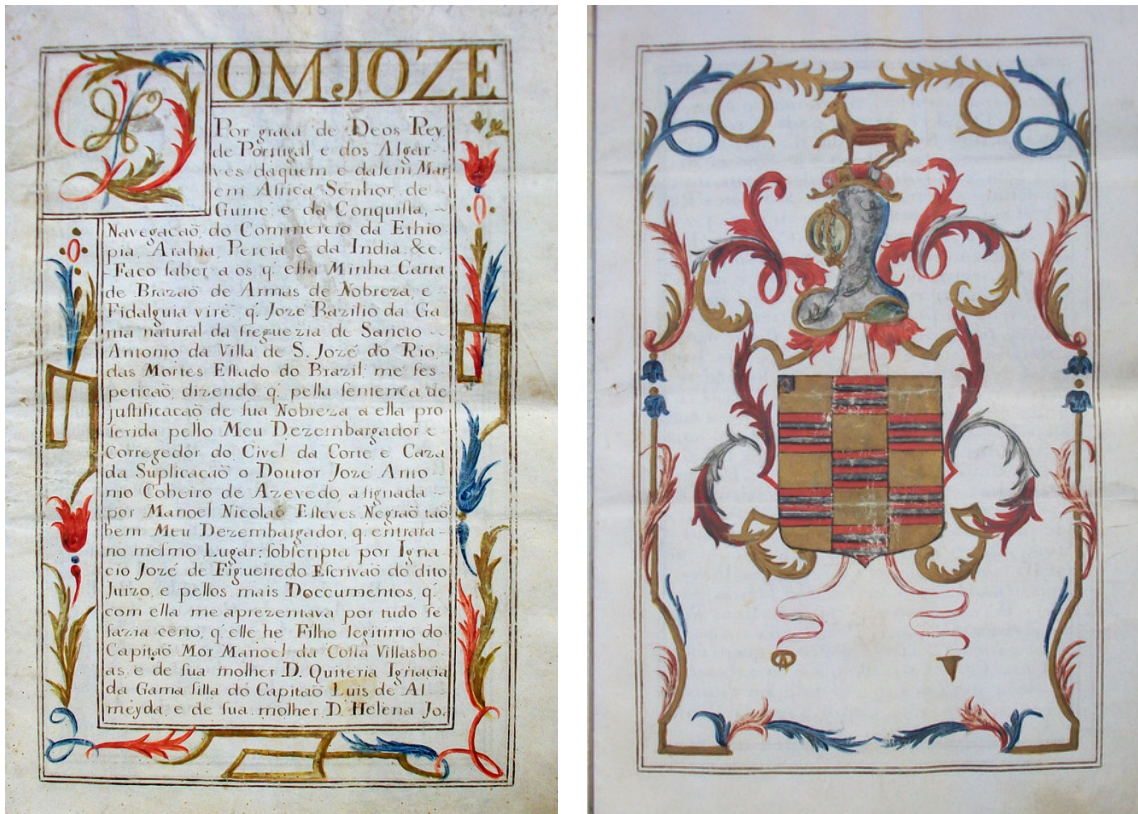 DOM JOZE
Por graça de Deos Rey,
de Portugal e dos Algar-
ves daquem e dalem Mar
em Africa Senhor de
Guiné, e da Conquista, ~
Navegacaõ do Commercio da Ethio
pia, Arabia, Percia e da India &c.
Faço saber a os q' esta Minha Carta
de Brazaõ de Armas de Nobreza, e
Fidalguia virê, q' Jozé Bazilio da Ga
ma natural da freguezia de Sancto
Antonio da Villa de S. Jozé do Rio
das Mortes Estado do Brazil, me fes
petiçaõ, dizendo q' pella sentença de
justificacaõ de sua Nobreza a ella pro
ferida pello Meu Dezembargador e
Corregedor do Civel da Corte e Caza
da Suplicaçaõ o Doutor Jozé Anto
nio Cobeiro de Azevedo, asignada ~
por Manoel Nicolao Esteves Negraõ tao
bem Meu Dezembargador, q' entrara
no mesmo Lugar; sobscripta por Igna
cio Jozé de Figueiredo Escrivaõ do dito
Juizo, e pellos mais Doccumentos, q'
com ella me aprezentava por tudo se
fazia certo, q' elle he Filho legitimo do
Capitaõ Mor Manoel da Costa Villasbo
as, e de sua molher D. Quiteria Ignacia
da Gama filla do Capitaõ Luis de Al
meyda, e de sua molher D. Helena Jo,